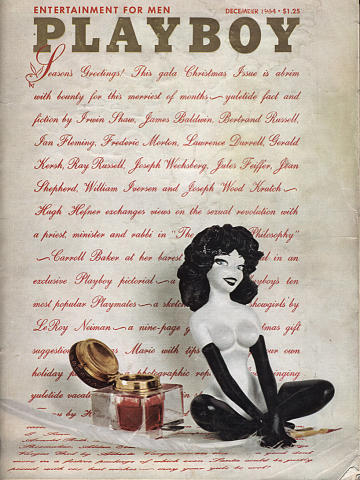 ENTERTAINMENT FOR MEN
DECEMBER 1964 • $1.25
PLAYBOY
Season's Greetings! This gala Christmas Issue is abrim
with bounty for this merriest of months — yuletide fact and
fiction by Irwin Shaw, James Baldwin, Bertrand Russell,
Ian Fleming, Frederic Morton, Lawrence Durrell, Gerald
Kersh, Ray Russell, Joseph Wechsberg, Jules Feiffer, Jean
Shepherd, William Iversen and Joseph Wood Krutch —
Hugh Hefner exchanges views on the sexual revolution with
a priest, minister and rabbi in "The Philosophy"
— Carroll Baker at her barest d in an
exclusive Playboy pictorial — a yboy's ten
most popular Playmates — a sketch howgirls by
LeRoy Neiman — a nine-page g tmas gift
suggestio Mario with tips our own
holiday p photographic rep winging
yuletide vacat
s by H